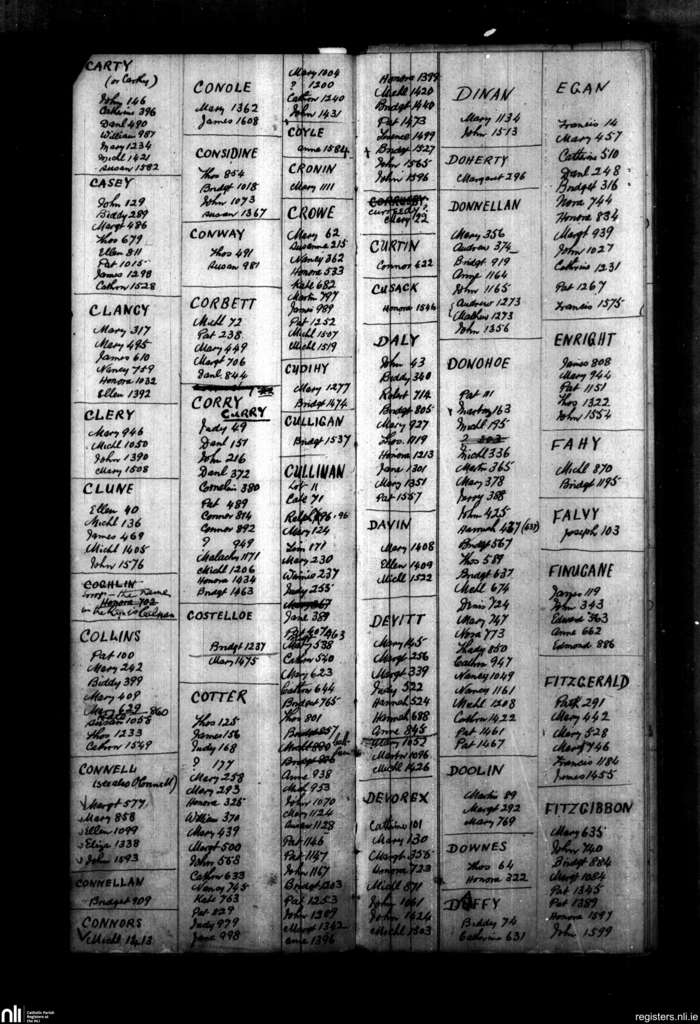 CARTY
(or Carthy)
John 146
Catherine 396
Danl 490
William 987
Mary 1234
Michl 1421
Susan 1582
CASEY
John 129
Biddy 289
Margt 486
Thos 679
Ellen 811
Pat 1015
James 1298
Cathrn 1528
CLANCY
Mary 317
Mary 495
James 610
Nancy 759
Honora 1032
Ellen 1392
CLERY
Mary 946
Michl 1050
John 1390
Mary 1508
CLUNE
Ellen 40
Michl 136
James 469
Michl 1405
John 1576
COGHLIN
Honora 702
COLLINS
Pat 100
Mary 242
Biddy 399
Mary 409
Mary 629 860
Susan 1058
Thos 1233
Cathrn 1549
CONNELL
(see also O'Connell)
Margt 577
Mary 858
Ellen 1099
Eliza 1338
John 1593
CONNELLAN
Bridget 909
CONNORS
Michl 1413
CONOLE
Mary 1362
James 1608
CONSIDINE
Thos 854
Bridgt 1018
John 1073
Susan 1367
CONWAY
Thos 491
Susan 981
CORBETT
Michl 72
Pat 238
Mary 449
Margt 706
Danl 844
CORRY
CURRY
Judy 49
Danl 151
John 216
Danl 372
Cornelius 380
Pat 489
Connor 814
Connor 892
? 949
Malachy 1171
Michl 1206
Honora 1434
Bridgt 1463
COSTELLOE
Bridgt 1237
Mary 1475
COTTER
Thos 125
James 156
Judy 168
? 177
Mary 258
Mary 293
Honora 325
William 370
Mary 439
Margt 500
John 568
Cathrn 633
Nancy 745
Kate 763
Pat 829
Judy 979
Jane 998
Mary 1004
? 1200
Cathrn 1240
John 1431
COYLE
Anne 1584
CRONIN
Mary 1111
CROWE
Mary 62
Susanna 215
Nancy 362
Honora 533
Kate 682
Martin 797
James 989
Pat 1252
Michl 1507
Michl 1519
CUDIHY
Mary 1277
Bridgt 1474
CULLIGAN
Bridgt 1537
CULLINAN
Cate 71
Mary 124
171
Mary 230
237
Judy 255
Jane 389
Mary 538
Cathrn 540
Mary 623
Cathrn 644
Bridget 765
Thos 801
Bridget 857
Anne 938
Mich 953
John 1070
Mary 1124
Susan 1128
Pat 1146
Pat 1147
John 1167
Bridget 1203
Pat 1253
John 1309
Margt 1342
Anne 1396
Honora 1399
Michl 1420
Bridgt 1440
Pat 1473
1499
Bridgt 1527
John 1565
John 1596
Mary 22
CURTIN
Connor 622
CUSACK
Honora 1546
DALY
John 43
Biddy 340
Robert 714
Bridgt 805
Mary 927
Thos. 1119
Honora 1213
Jane 1301
Mary 1351
Pat 1557
DAVIN
Mary 1408
Ellen 1409
Michl 1522
DEVITT
Mary 165
Margt 256
Margt 339
Judy 522
Hannah 524
Hannah 688
Anne 845
Mary 1052
Martin 1096
Michl 1426
DEVOREX
Cathrine 101
Mary 130
Margt 355
Honora 723
Michl 871
John 1061
John 1424
Michl 1503
DINAN
Mary 1134
John 1513
DOHERTY
Margaret 296
DONNELLAN
Mary 356
Andrew 374
Bridgt. 919
Anne 1164
John 1165
Andrew 1273
Mathew 1273
John 1356
DONOHOE
Pat 111
Martin 163
Michl 195
? 303
Michl 336
Martin 365
Mary 378
388
John 425
Hannah 467 (637)
Bridgt 567
Thos 589
Bridgt 637
Michl 674
Denis 724
Mary 747
Nora 773
Thady 850
Cathrn 947
Nancy 1049
Nancy 1161
Michl 1208
Cathrn 1422
Pat 1461
Pat 1467
DOOLIN
Martin 89
Margt 292
Mary 769
DOWNES
Thos 64
Honora 322
DUFFY
Biddy 74
Catherine 631
EGAN
Francis 14
Mary 457
Cathrine 510
Danl 248
Bridget 316
Nora 744
Honora 834
Margt 939
John 1027
Cathrine 1231
Pat 1267
Francis 1575
ENRIGHT
James 808
Mary 944
Pat 1151
Thos 1322
John 1554
FAHY
Michl 870
Bridgt 1195
FALVY
Joseph 103
FINUGANE
James 119
John 343
Edward 363
Anne 662
Edmond 886
FITZGERALD
Patk 291
Mary 442
Mary 528
Margt 746
Francis 1184
James 1455
FITZGIBBON
Mary 635
John 740
Bridgt 884
Margt 1084
Pat 1345
Pat 1389
Honora 1597
John 1599
nli
Catholic Parish
Registers at
the NLI
registers.nli.ie